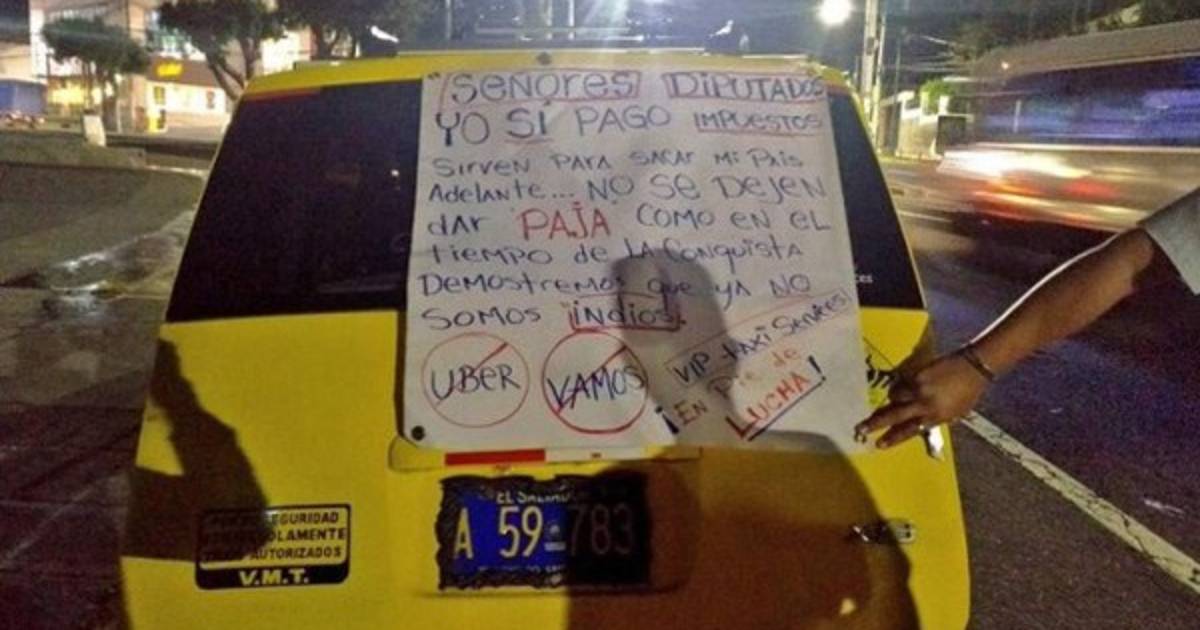 "SEÑORES DIPUTADOS
YO SI PAGO IMPUESTOS
SIRVEN PARA SACAR MI PAIS
ADELANTE... NO SE DEJEN
DAR PAJA COMO EN EL
TIEMPO DE LA CONQUISTA
DEMOSTREMOS QUE YA NO
SOMOS "INDIOS".
UBER
VAMOS
VIP TAXI SERVICES
¡EN PIE DE
LUCHA!
EL SALVADOR
A 59 783
SEGURIDAD
SOLAMENTE
AUTORIZADOS
V.M.T.